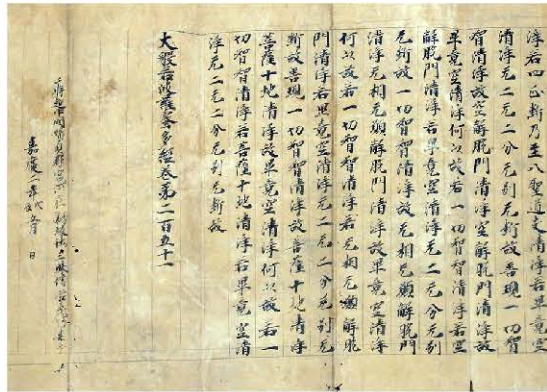 淨若四正斷乃至八聖道支清淨若畢竟空
清淨无二无二分无別无斷故善現一切智
智清淨故空解脫門清淨空解脫門清淨故
畢竟空清淨何以故若一切智智清淨若空
解脫門清淨若畢竟空清淨无二无二分无別
无斷故一切智智清淨故无相无願解脫門
清淨无相无願解脫門清淨故畢竟空清淨
何以故若一切智智清淨若无相无願解脫
門清淨若畢竟空清淨无二无二分无別无
斷故善現一切智智清淨故菩薩十地清淨
菩薩十地清淨故畢竟空清淨何以故若一
切智智清淨若菩薩十地清淨若畢竟空清
淨无二无二分无別无斷故
大般若波羅蜜多經卷第二百五十一
嘉慶二年 五月 日